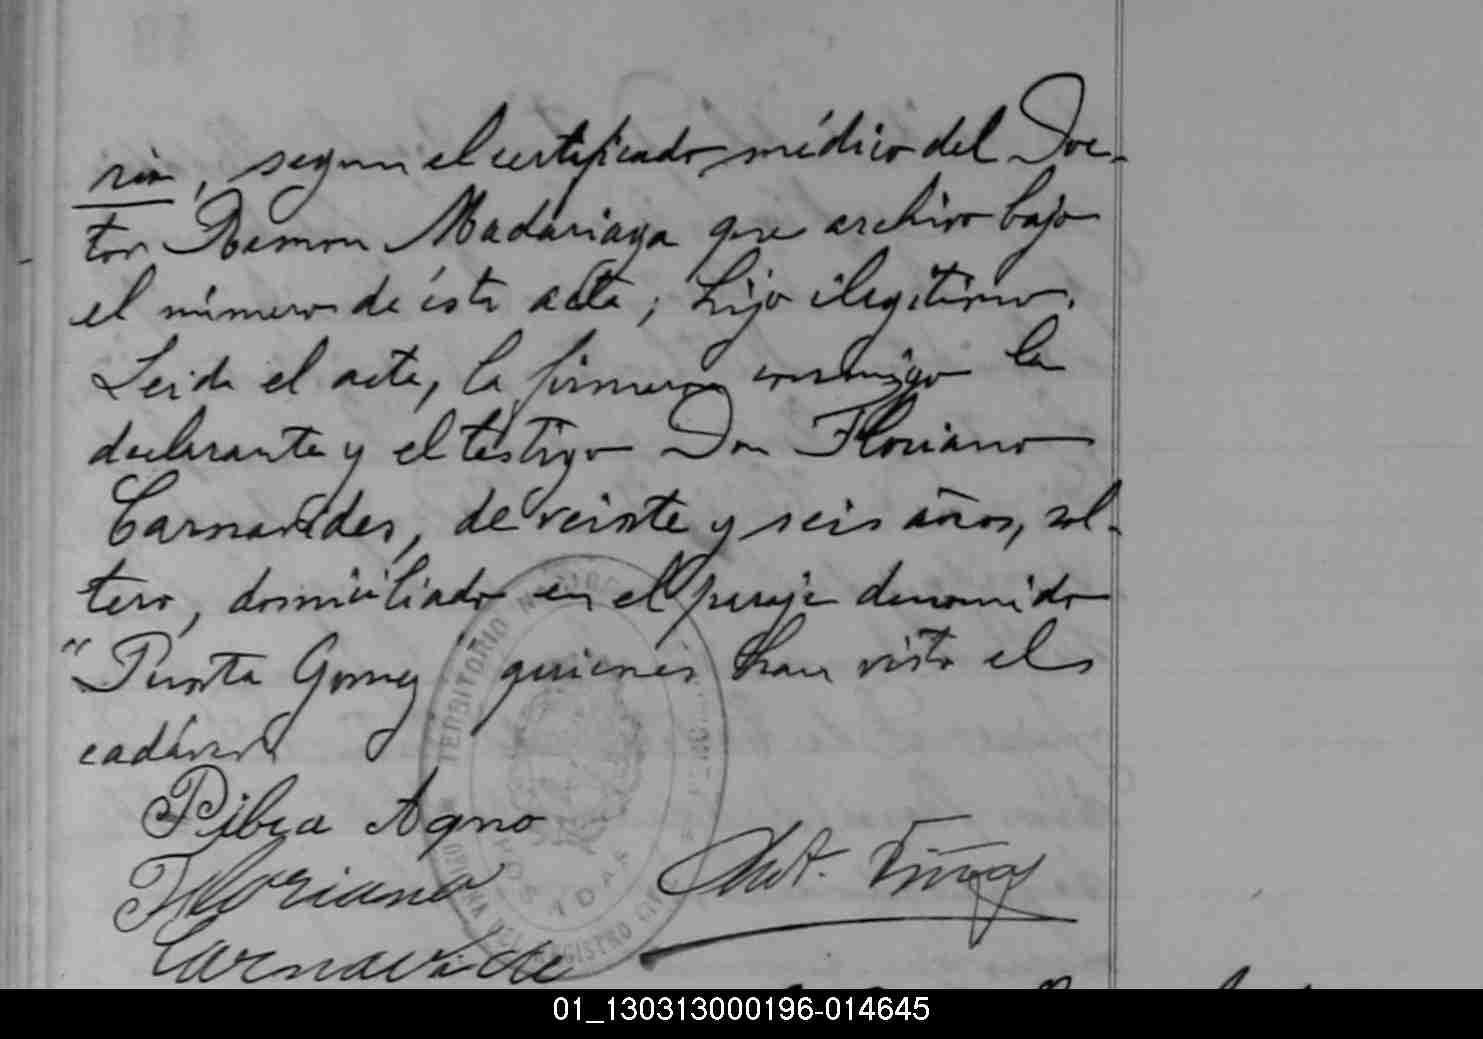 ria, segun el certificado médico del Doc-
tor Ramon Madariaga que archivo bajo
el número de ésta acta; hijo ilegítimo.
Leida el acta, la firmaron conmigo la
declarante y el testigo Don Floriano
Carnavides, de veinte y seis años, sol-
tero, domiciliado en el paraje denomido
"Punta Gomez" quienes han visto el
cadáver.
Pibca Agno
Floriano
Carnavide
TERRITORIO NACIONAL
OFICINA DEL REGISTRO CIVIL
POSADAS
01_130313000196-014645